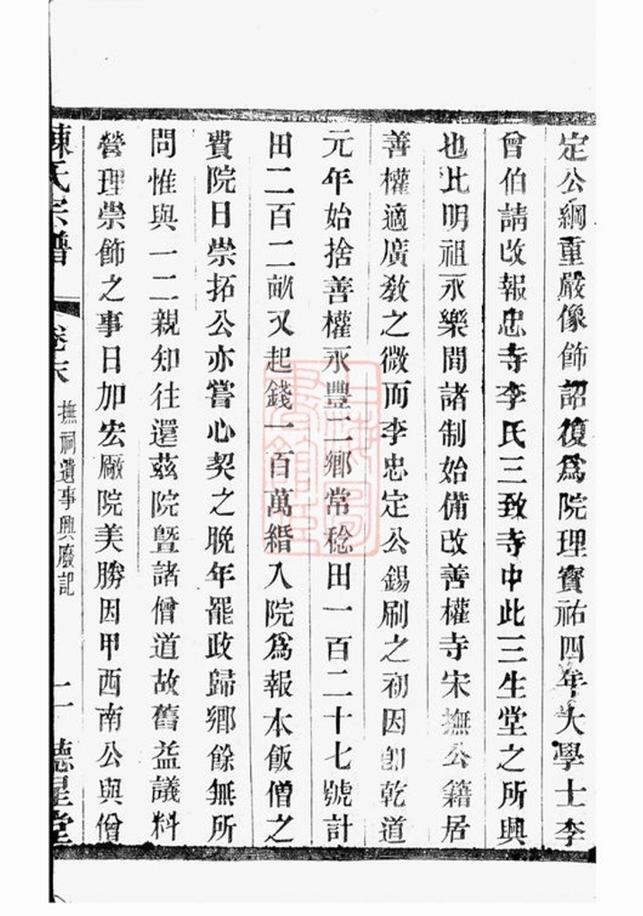 定公綱重嚴像飾詔復爲院理寶祐四年大學士李
曾伯請改報忠寺李氏三致寺中此三生堂之所興
也比明祖永樂間諸制始備改善權寺宋撫公籍居
善權適廣敎之微而李忠定公錫刷之初因卽乾道
元年始捨善權永豐二鄉常稔田一百二十七號計
田二百二畝又起錢一百萬緡入院爲報本飯僧之
費院日崇拓公亦嘗心契之晚年罷政歸鄉餘無所
問惟與一二親知往還茲院暨諸僧道故舊益議料
營理崇飾之事日加宏厰院美勝因甲西南公與僧
陳氏宗譜
卷末
撫祠遺事興廢記
二
德星堂